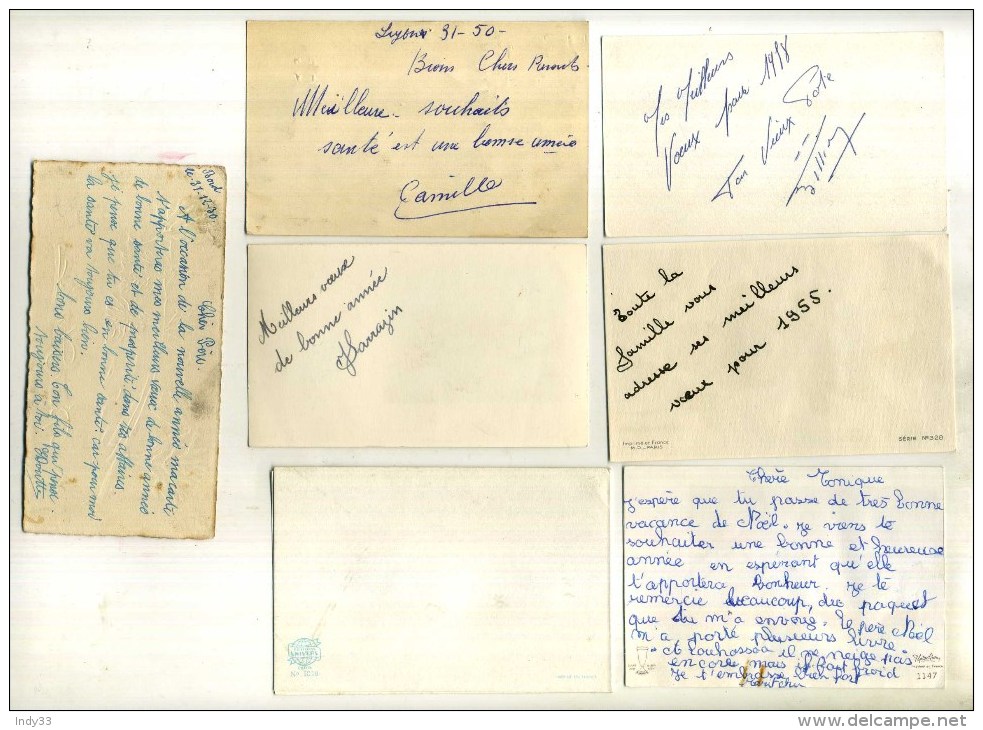 Bord
le 31-12-30.
Cher Père.
A l'occasion de la nouvelle année ma carte
t'apportera mes meilleurs vœux de bonne année
de bonne santé et de prospérité dans tes affaires.
Je pense que tu es en bonne santé car pour moi
la santé va toujours bien.
bons baisers. ton fils qui pense
toujours à toi.
31-50-
Chers
Meilleure souhaits
santé est une bonne année
Camille
Mes Meilleurs
Voeux pour 1958
Ton Vieux Pote
Meilleurs vœux
de bonne année
Sarrazin
Toute la
famille vous
adresse ses meilleurs
vœux pour 1955.
IMPRIMÉ EN FRANCE
M.D. - PARIS
SÉRIE N° 328
Chère Monique
j'espère que tu passe de très bonne
vacance de Noël. Je viens te
souhaiter une bonne et heureuse
année en espérant qu'elle
t'apportera bonheur je te
remercie beaucoup, du paquet
que tu m'a envoyé. le père Noël
m'a porté plusieurs livre.
il ne neige pas
encore mais il fait froid
Je t'embrasse bien fort
1147
Indy33
www.delcampe.net